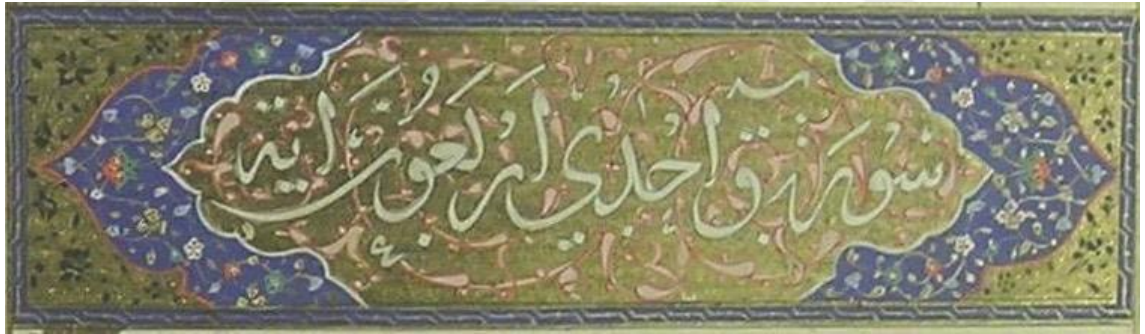 سورة ق احدي اربعون اية